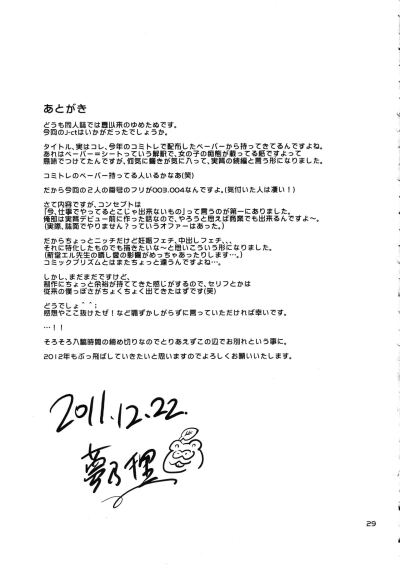 あとがき
どうも同人誌では夏以来のゆめたぬです。
今回のJ-ctはいかがだったでしょうか。
タイトル、実はコレ、今年のコミトレで配布したペーパーから持ってきてるんですよね。
あれはペーパー=シートっていう解釈で、女の子の痴態が載ってる紙ですよって
意味でつけてたんですが、何気に響きが気に入って、実質の続編と言う形になりました。
コミトレのペーパー持ってる人いるかなあ(笑)
だから今回の2人の番号のフリが003.004なんですよ。(気付いた人は凄い!)
さて内容ですが、コンセプトは
「今、仕事でやってるとこじゃ出来ないもの」って言うのが第一にありました。
俺自は実質デビュー前に作った話なので、やろうと思えば商業でも出来るんですよ~。
(実際、誌面でやりません?っていうオファーはあった。)
だからちょっとニッチだけど妊娠フェチ、中出しフェチ、、、
それに特化したものでも描きたいな~と思いこういう形になりました。
(新堂エル先生の語し愛の影響がめっちゃあったりします…。)
コミックプリズムとはまたちょっと違うんですよね…。
しかし、まだまだですけど、
制作にちょっと余裕が持てきた感じがするので、セリフとかは
従来の僕っぽさがちょくちょく出てきたはずです(笑)
どうでしょ^^;
感想やここ抜けたぜ!など恥ずかしがらずに言っていただければ幸いです。
…!!
そろそろ八幡時間の締め切りなのでとりあえずこの辺でお別れという事に。
2012年もぶっ飛ばしていきたいと思いますのでよろしくお願いいたします。
2011.12.22.
夢乃狸
29